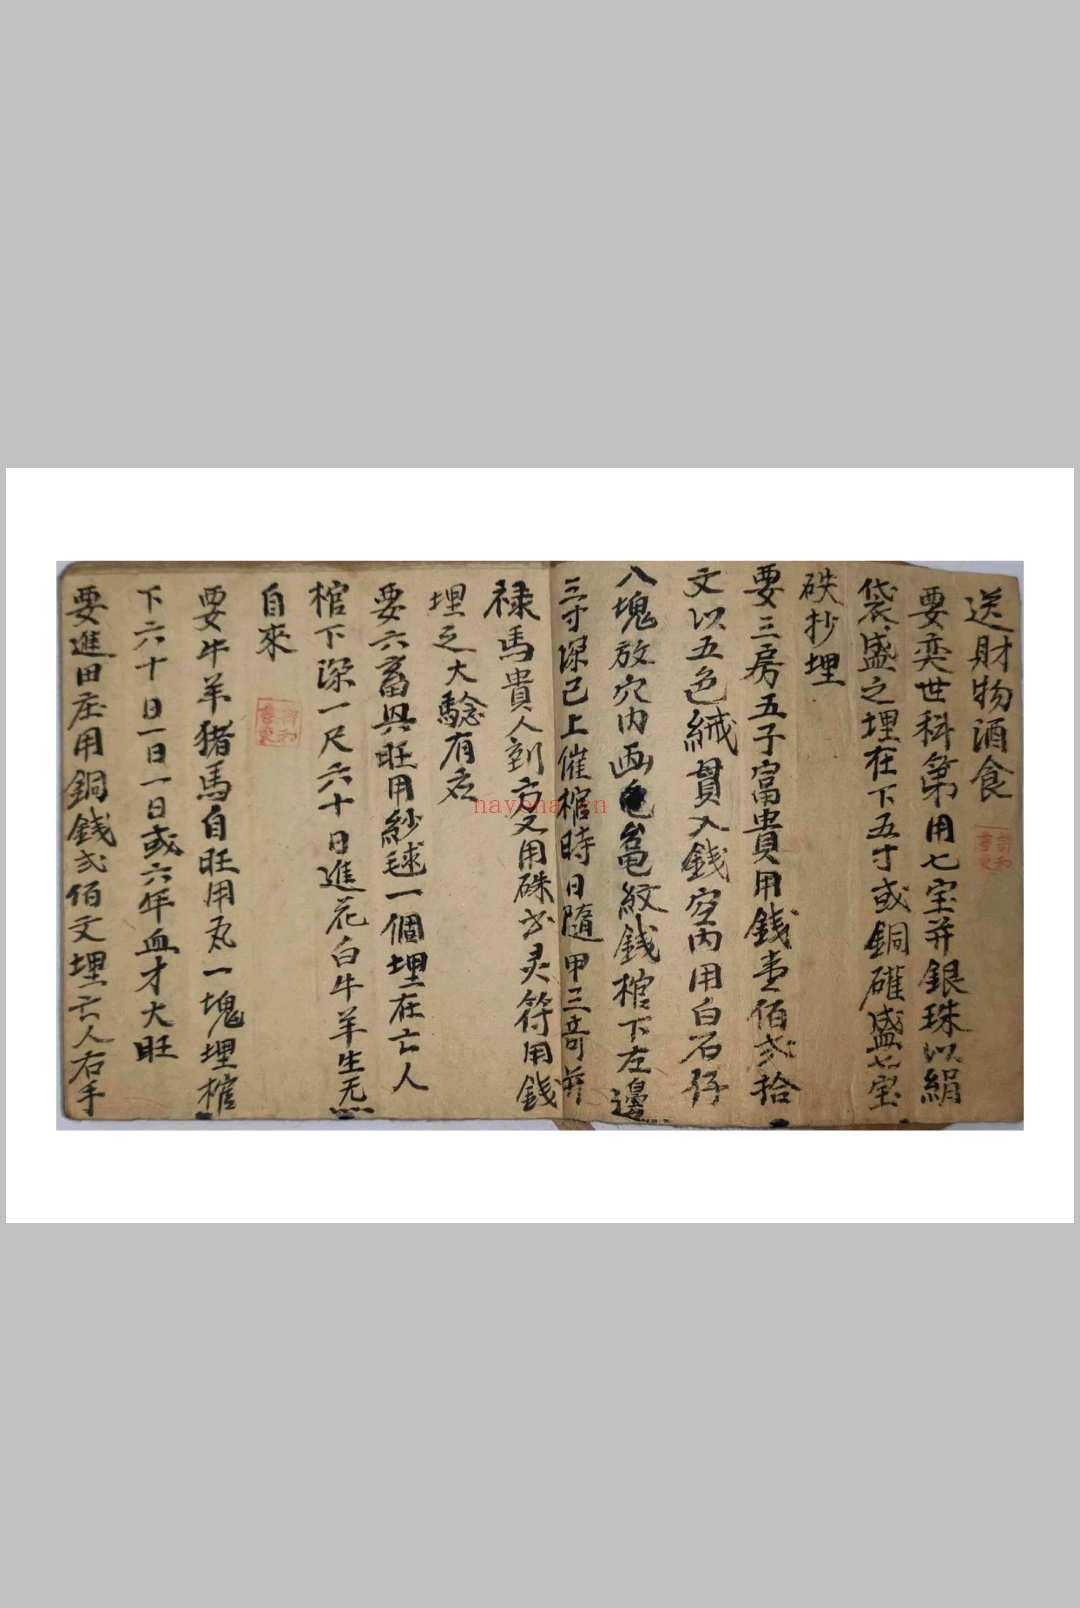 送財物酒食
要奕世科第用七宝并銀珠以絹
袋盛之埋在下五寸或銅礶盛七宝
砄抄埋
要三房五子富貴用錢壹佰弍拾
文以五色絨貫入錢空內用白石仔
八塊放穴內画龟紋錢棺下左邊
三寸深已上催棺時日隨甲三奇并
禄馬貴人到方又用硃書灵符用錢
埋之大騐有应
要六畜興旺用紗毬一個埋在亡人
棺下深一尺六十日進花白牛羊生炁
自來
要牛羊猪馬自旺用丸一塊埋棺
下六十日一日一日或六年血才大旺
要進田庄用銅錢弍佰文埋亡人右手
nayona.cn